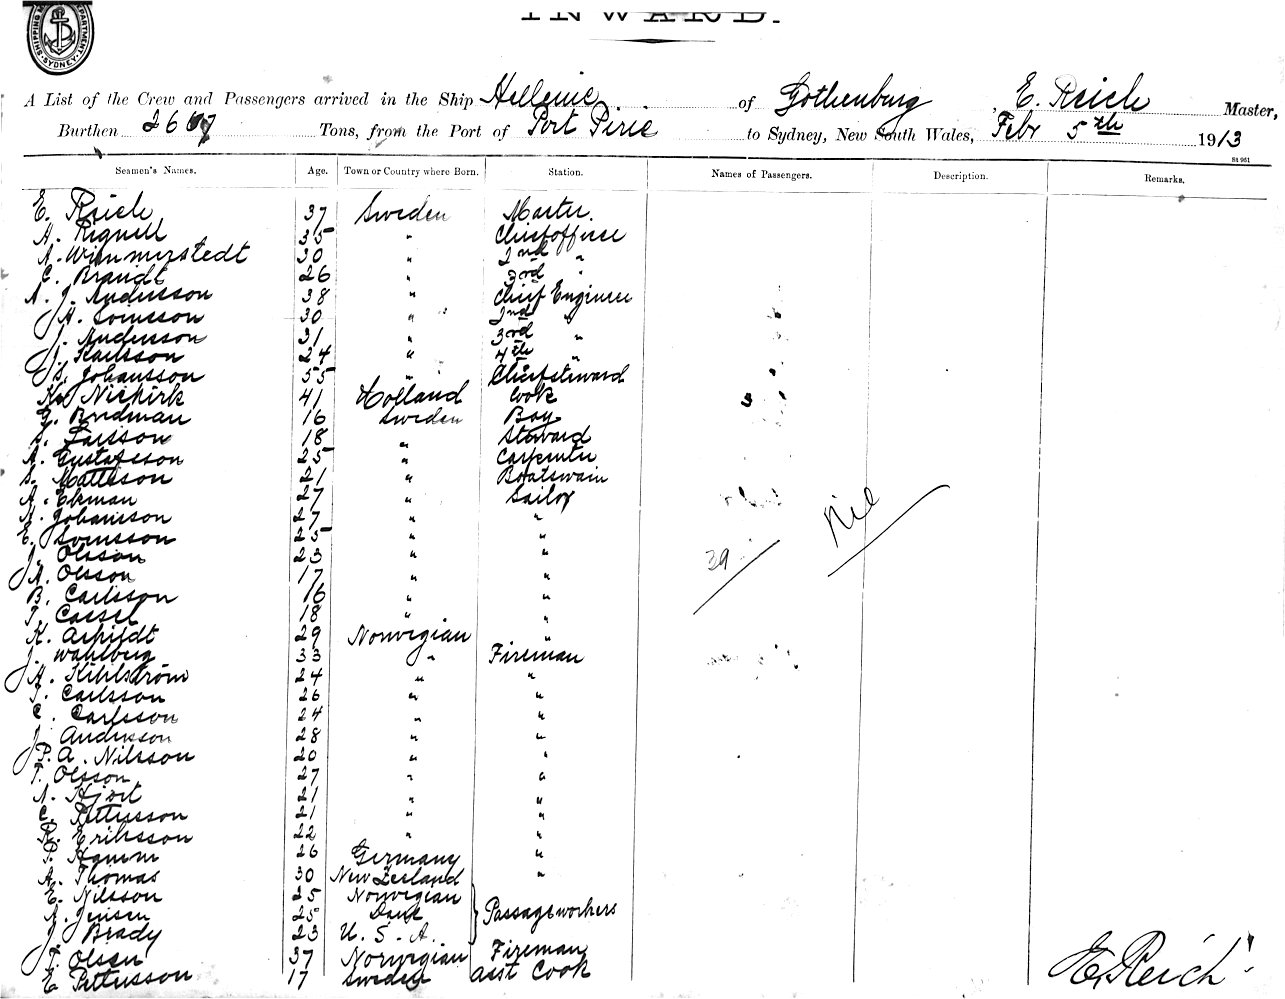 INWARD.
SHIPPING DEPARTMENT SYDNEY
A List of the Crew and Passengers arrived in the Ship Hellenic of Gothenburg, E. Reich Master,
Burthen 2667 Tons, from the Port of Port Pirie to Sydney, New South Wales, Febr 5th 1913
St 961
Seamen's Names. Age. Town or Country where Born. Station. Names of Passengers. Description. Remarks.
E. Reich 37 Sweden Master.
H. Rignell 35 " Chiefofficer
A. Wimmerstedt 30 " 2nd "
C. Brandt 26 " 3rd "
A. J. Andersson 38 " Chief Engineer
A. Svensson 30 " 2nd "
J. Andersson 31 " 3rd "
J. Karlsson 24 " 4th "
S. Johansson 55 " Chiefsteward
Niekirk 41 Holland Cook
Brudman 16 Sweden Boy
S. Larsson 18 " Steward
A. Gustafsson 25 " Carpenter
S. Mattsson 21 " Boatswain
A. Ekman 27 " Sailor
A. Johansson 27 " "
E. Svensson 25 " "
J. Olsson 23 " "
A. Olsson 17 " "
B. Carlsson 16 " "
T. Cassel 18 " "
K. 29 Norwegian "
J. Wahlberg 33 " Fireman
A. Kihlström 24 " "
T. Carlsson 26 " "
C. Carlsson 24 " "
J. Andersson 28 " "
P. A. Nilsson 20 " "
T. Olsson 27 " "
A. Hjort 21 " "
C. Pettersson 21 " "
R. Eriksson 22 " "
P. Hamm 26 Germany "
A. Thomas 30 New Zeeland "
E. Nilsson 25 Norwegian
A. Jensen 25 Dane Passageworkers
J. Brady 23 U. S. A.
T. Olsen 37 Norwegian Fireman
E. Pettersson 17 Sweden Asst Cook
39
Nil
E. Reich